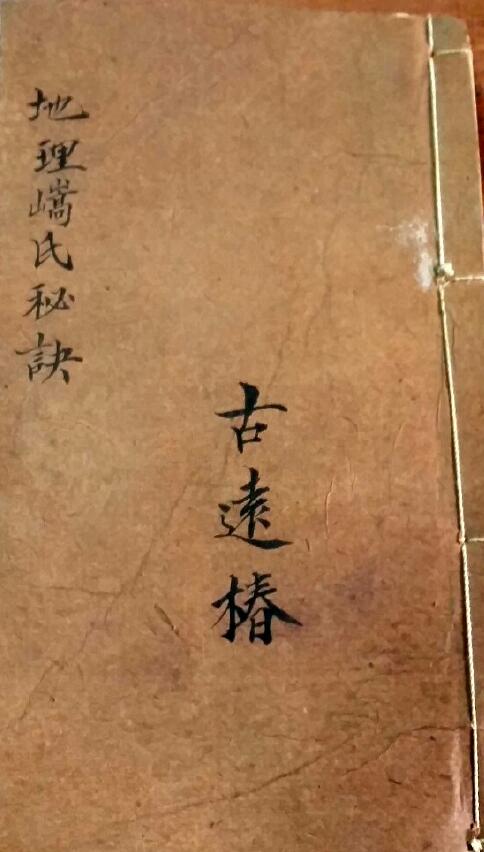 地理嵩氏秘訣
古遠椿